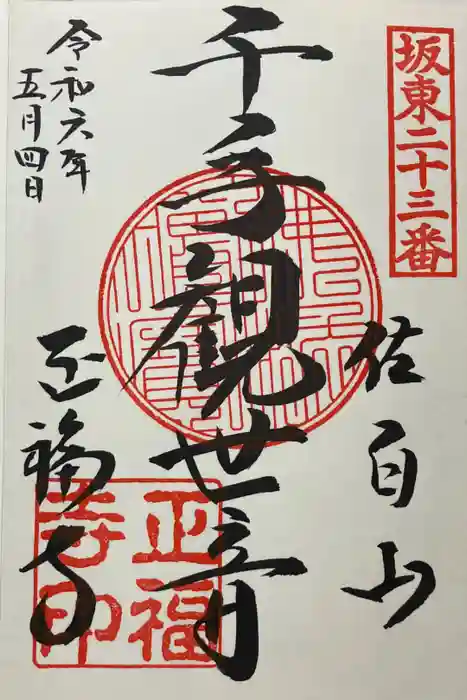 坂東二十三番
佐白山
千手観世音
正福寺
令和六年
五月四日
正福
寺印